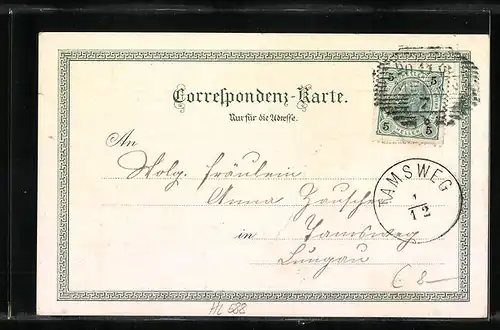 Correspondenz-Karte.
Nur für die Adresse.
5 5
HELLER
An
Wolg. Fräulein
Anna
in Tamsweg
Lungau
TAMSWEG
1/12
€ 8—
HL 688